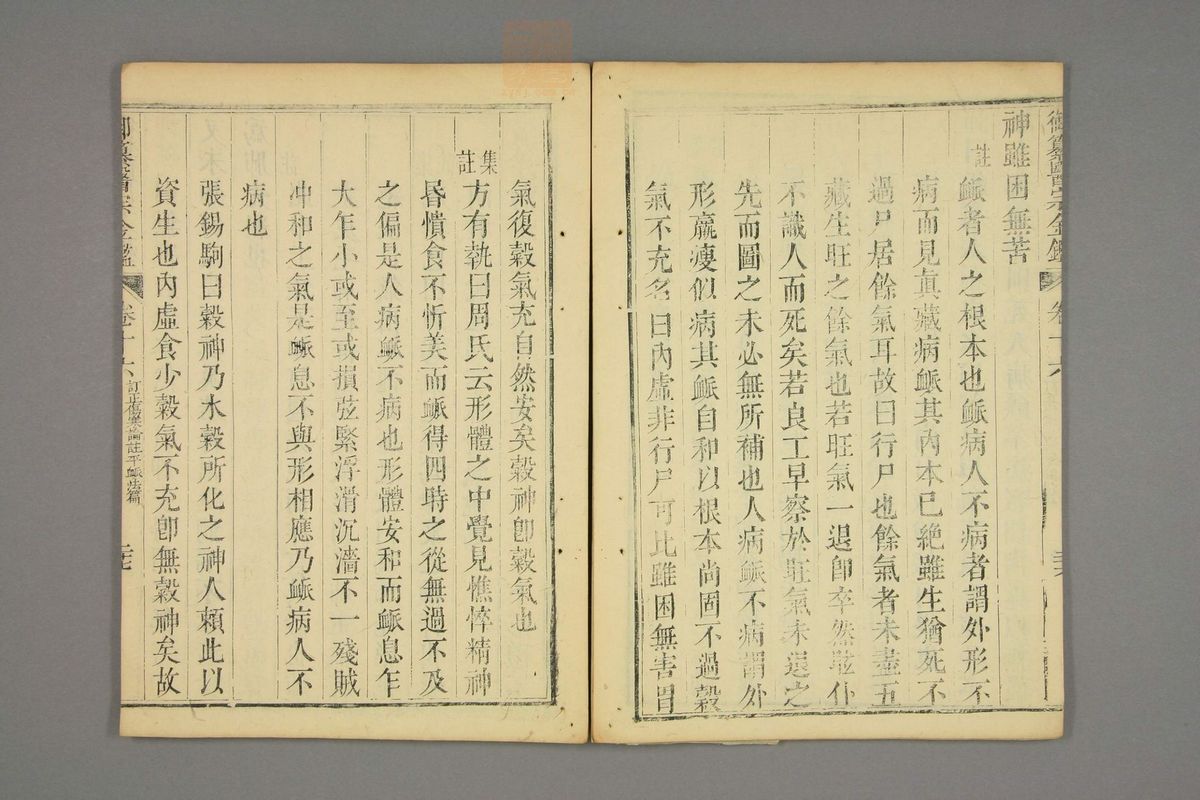 御纂醫宗金鑑 卷十六
神雖困無苦
註
䘑者人之根本也䘑病人不病者謂外形不
病而見眞藏病䘑其內本已絕雖生猶死不
過尸居餘氣耳故曰行尸也餘氣者未盡五
藏生旺之餘氣也若旺氣一退卽卒然眩仆
不識人而死矣若良工早察於旺氣未退之
先而圖之未必無所補也人病䘑不病謂外
形羸瘦似病其䘑自和以根本尚固不過穀
氣不充名曰內虛非行尸可比雖困無害胃
氣復穀氣充自然安矣穀神卽穀氣也
集註
方有執曰周氏云形體之中覺見憔悴精神
昬憒食不忻美而䘑得四時之從無過不及
之偏是人病䘑不病也形體安和而䘑息乍
大乍小或至或損弦緊浮滑沉濇不一殘賊
冲和之氣是䘑息不與形相應乃䘑病人不
病也
張錫駒曰穀神乃水穀所化之神人賴此以
資生也內虛食少穀氣不充卽無穀神矣故
御纂醫宗金鑑 卷十六 訂正傷寒論註平䘑法篇